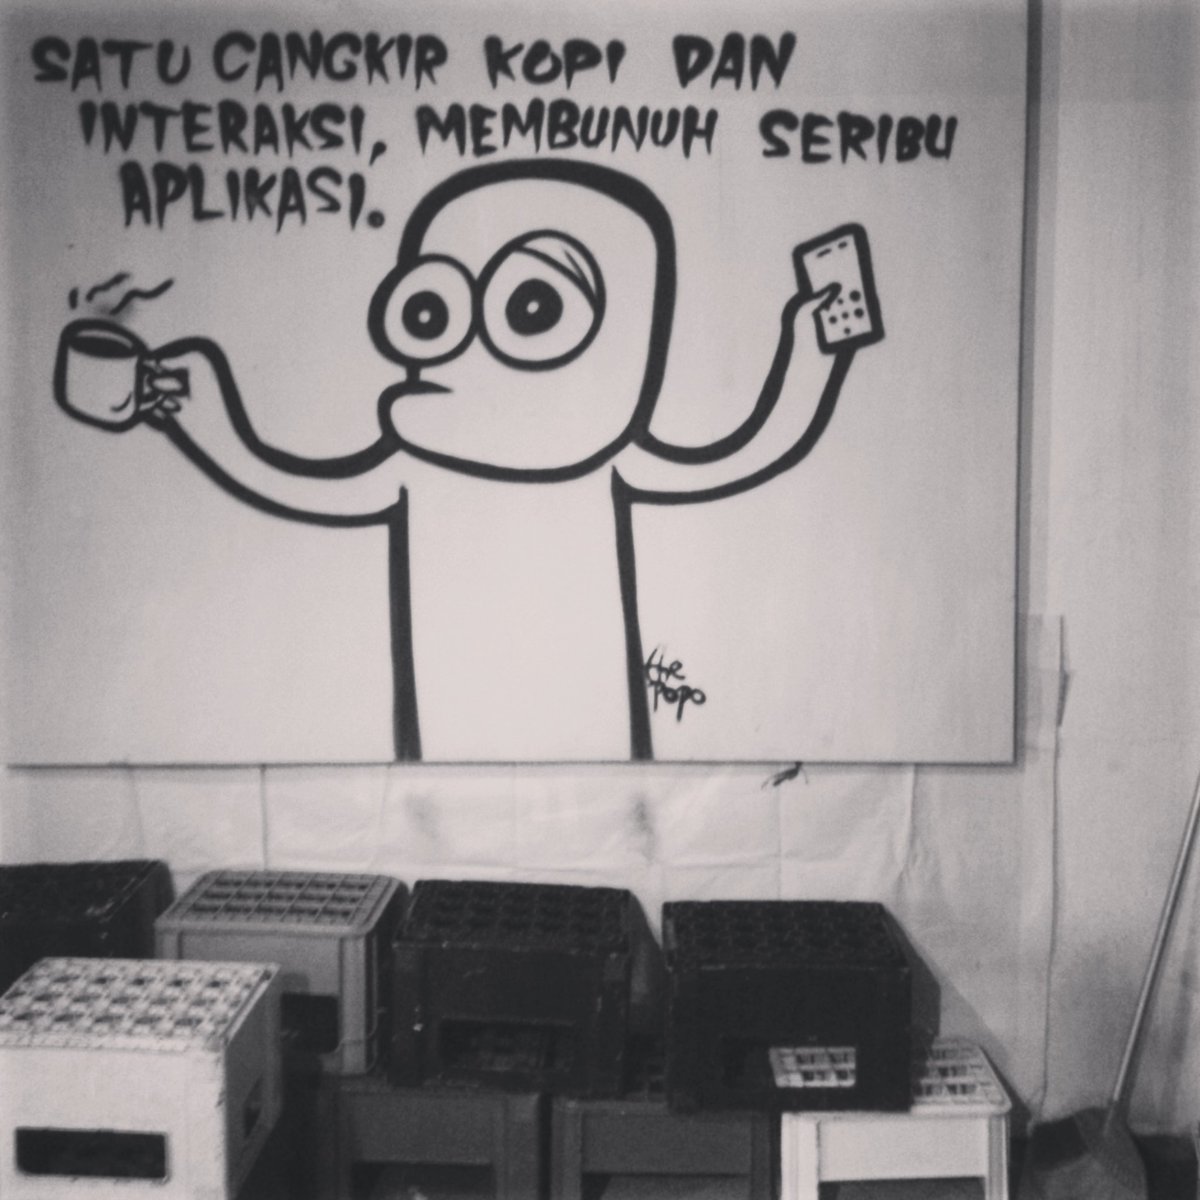 SATU CANGKIR KOPI DAN
INTERAKSI, MEMBUNUH SERIBU
APLIKASI.
THE
POPO